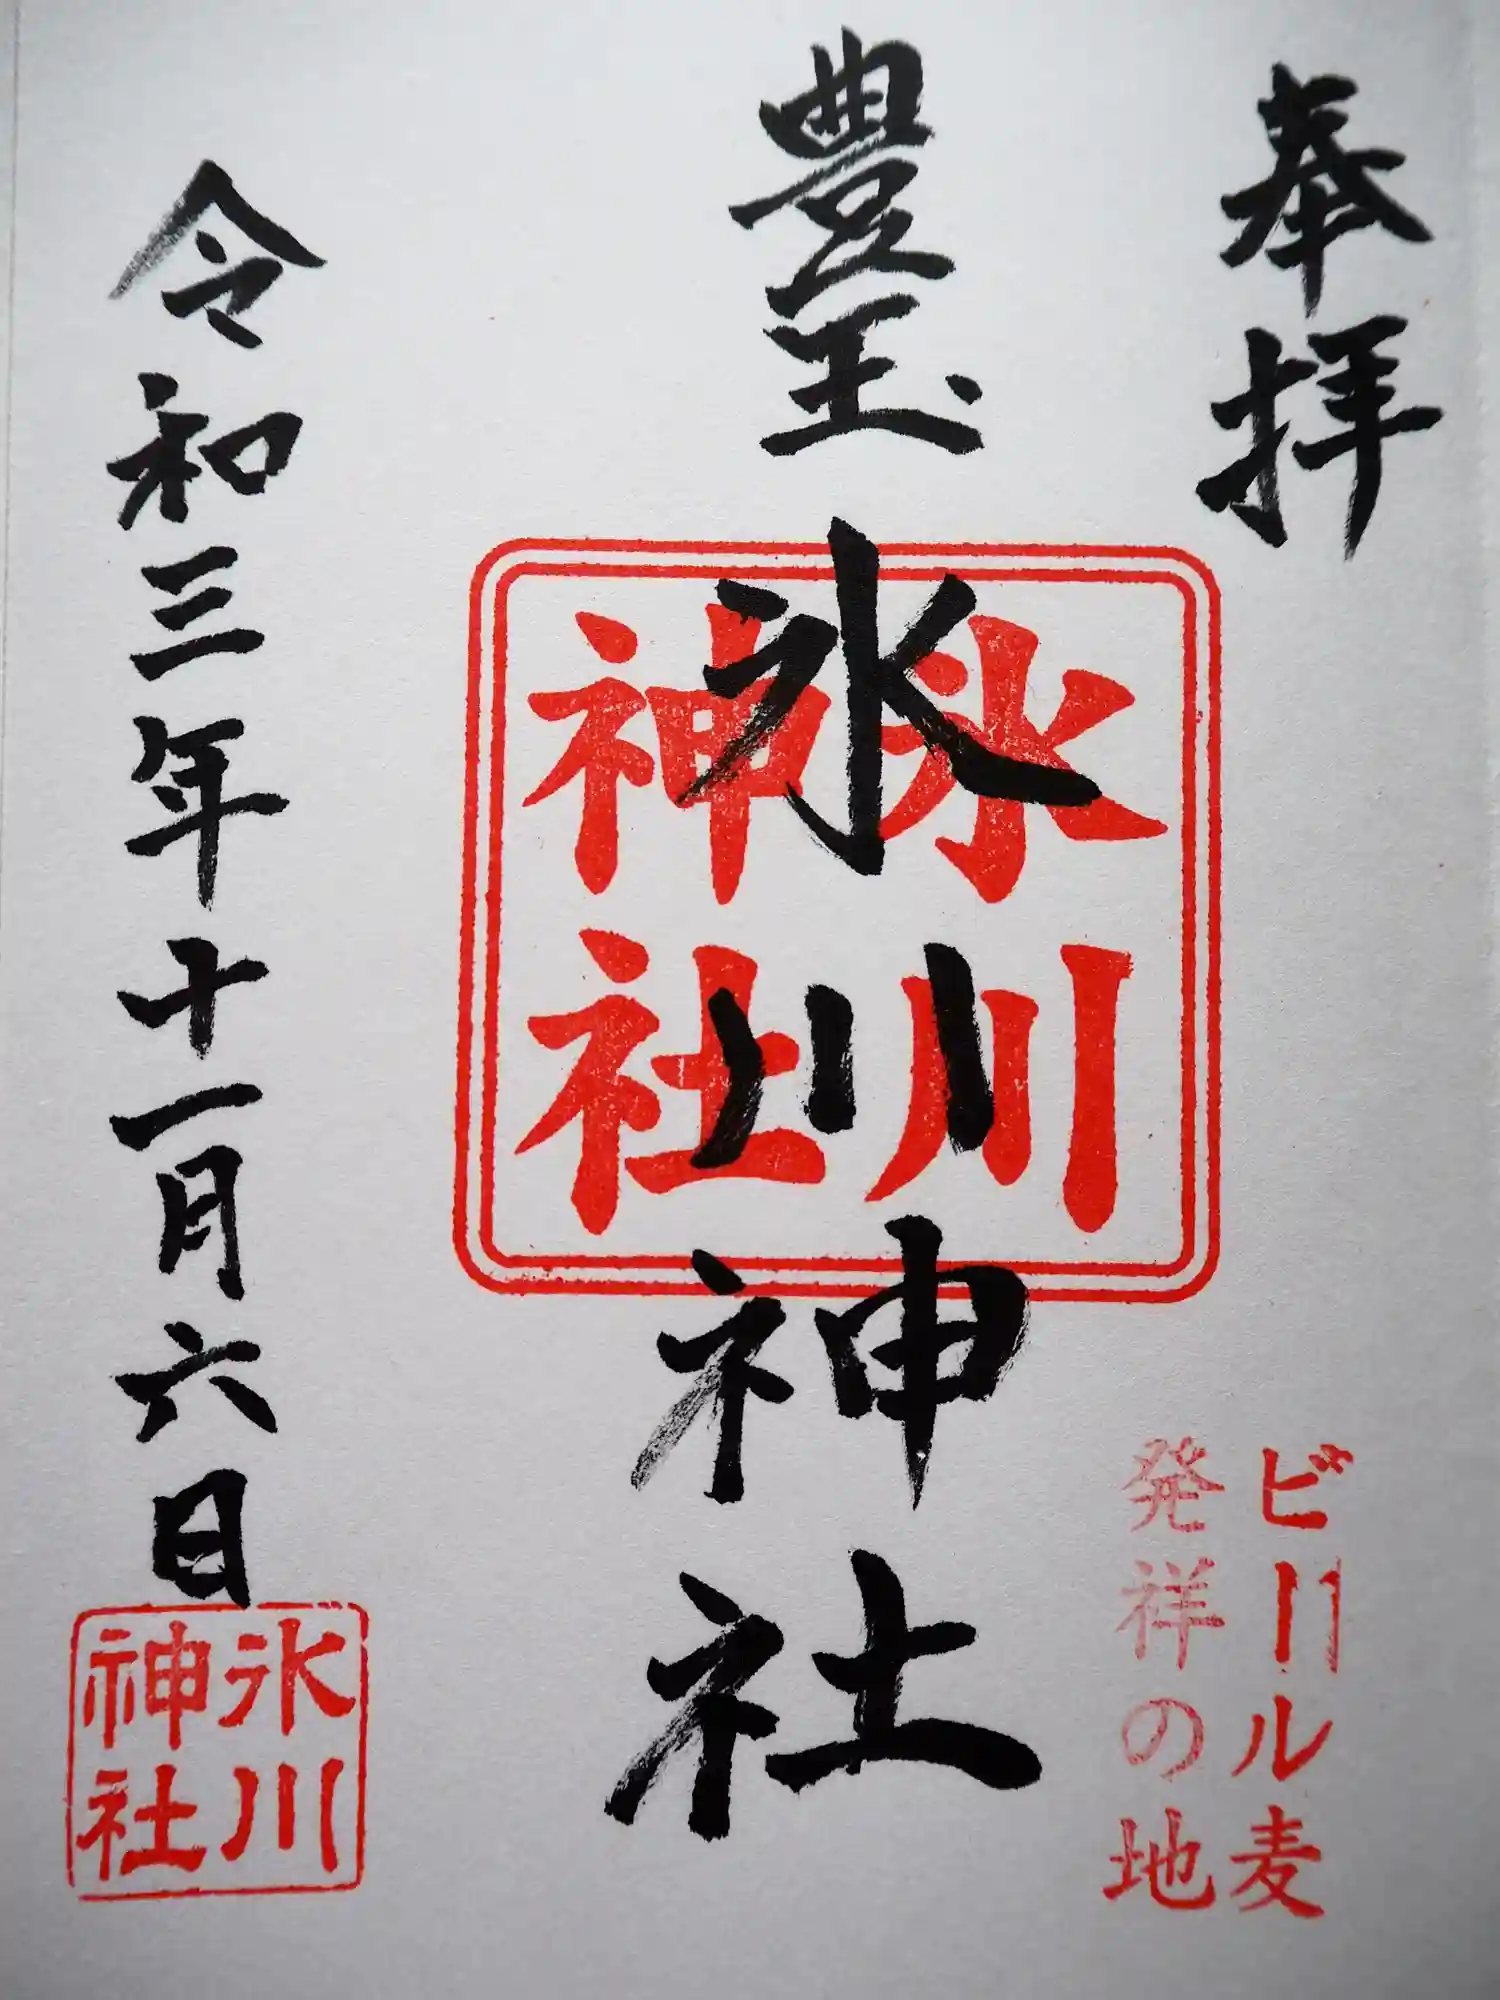 奉拝
ビール麦
発祥の地
豊玉
氷川神社
氷川
神社
令和三年十一月六日
氷川
神社